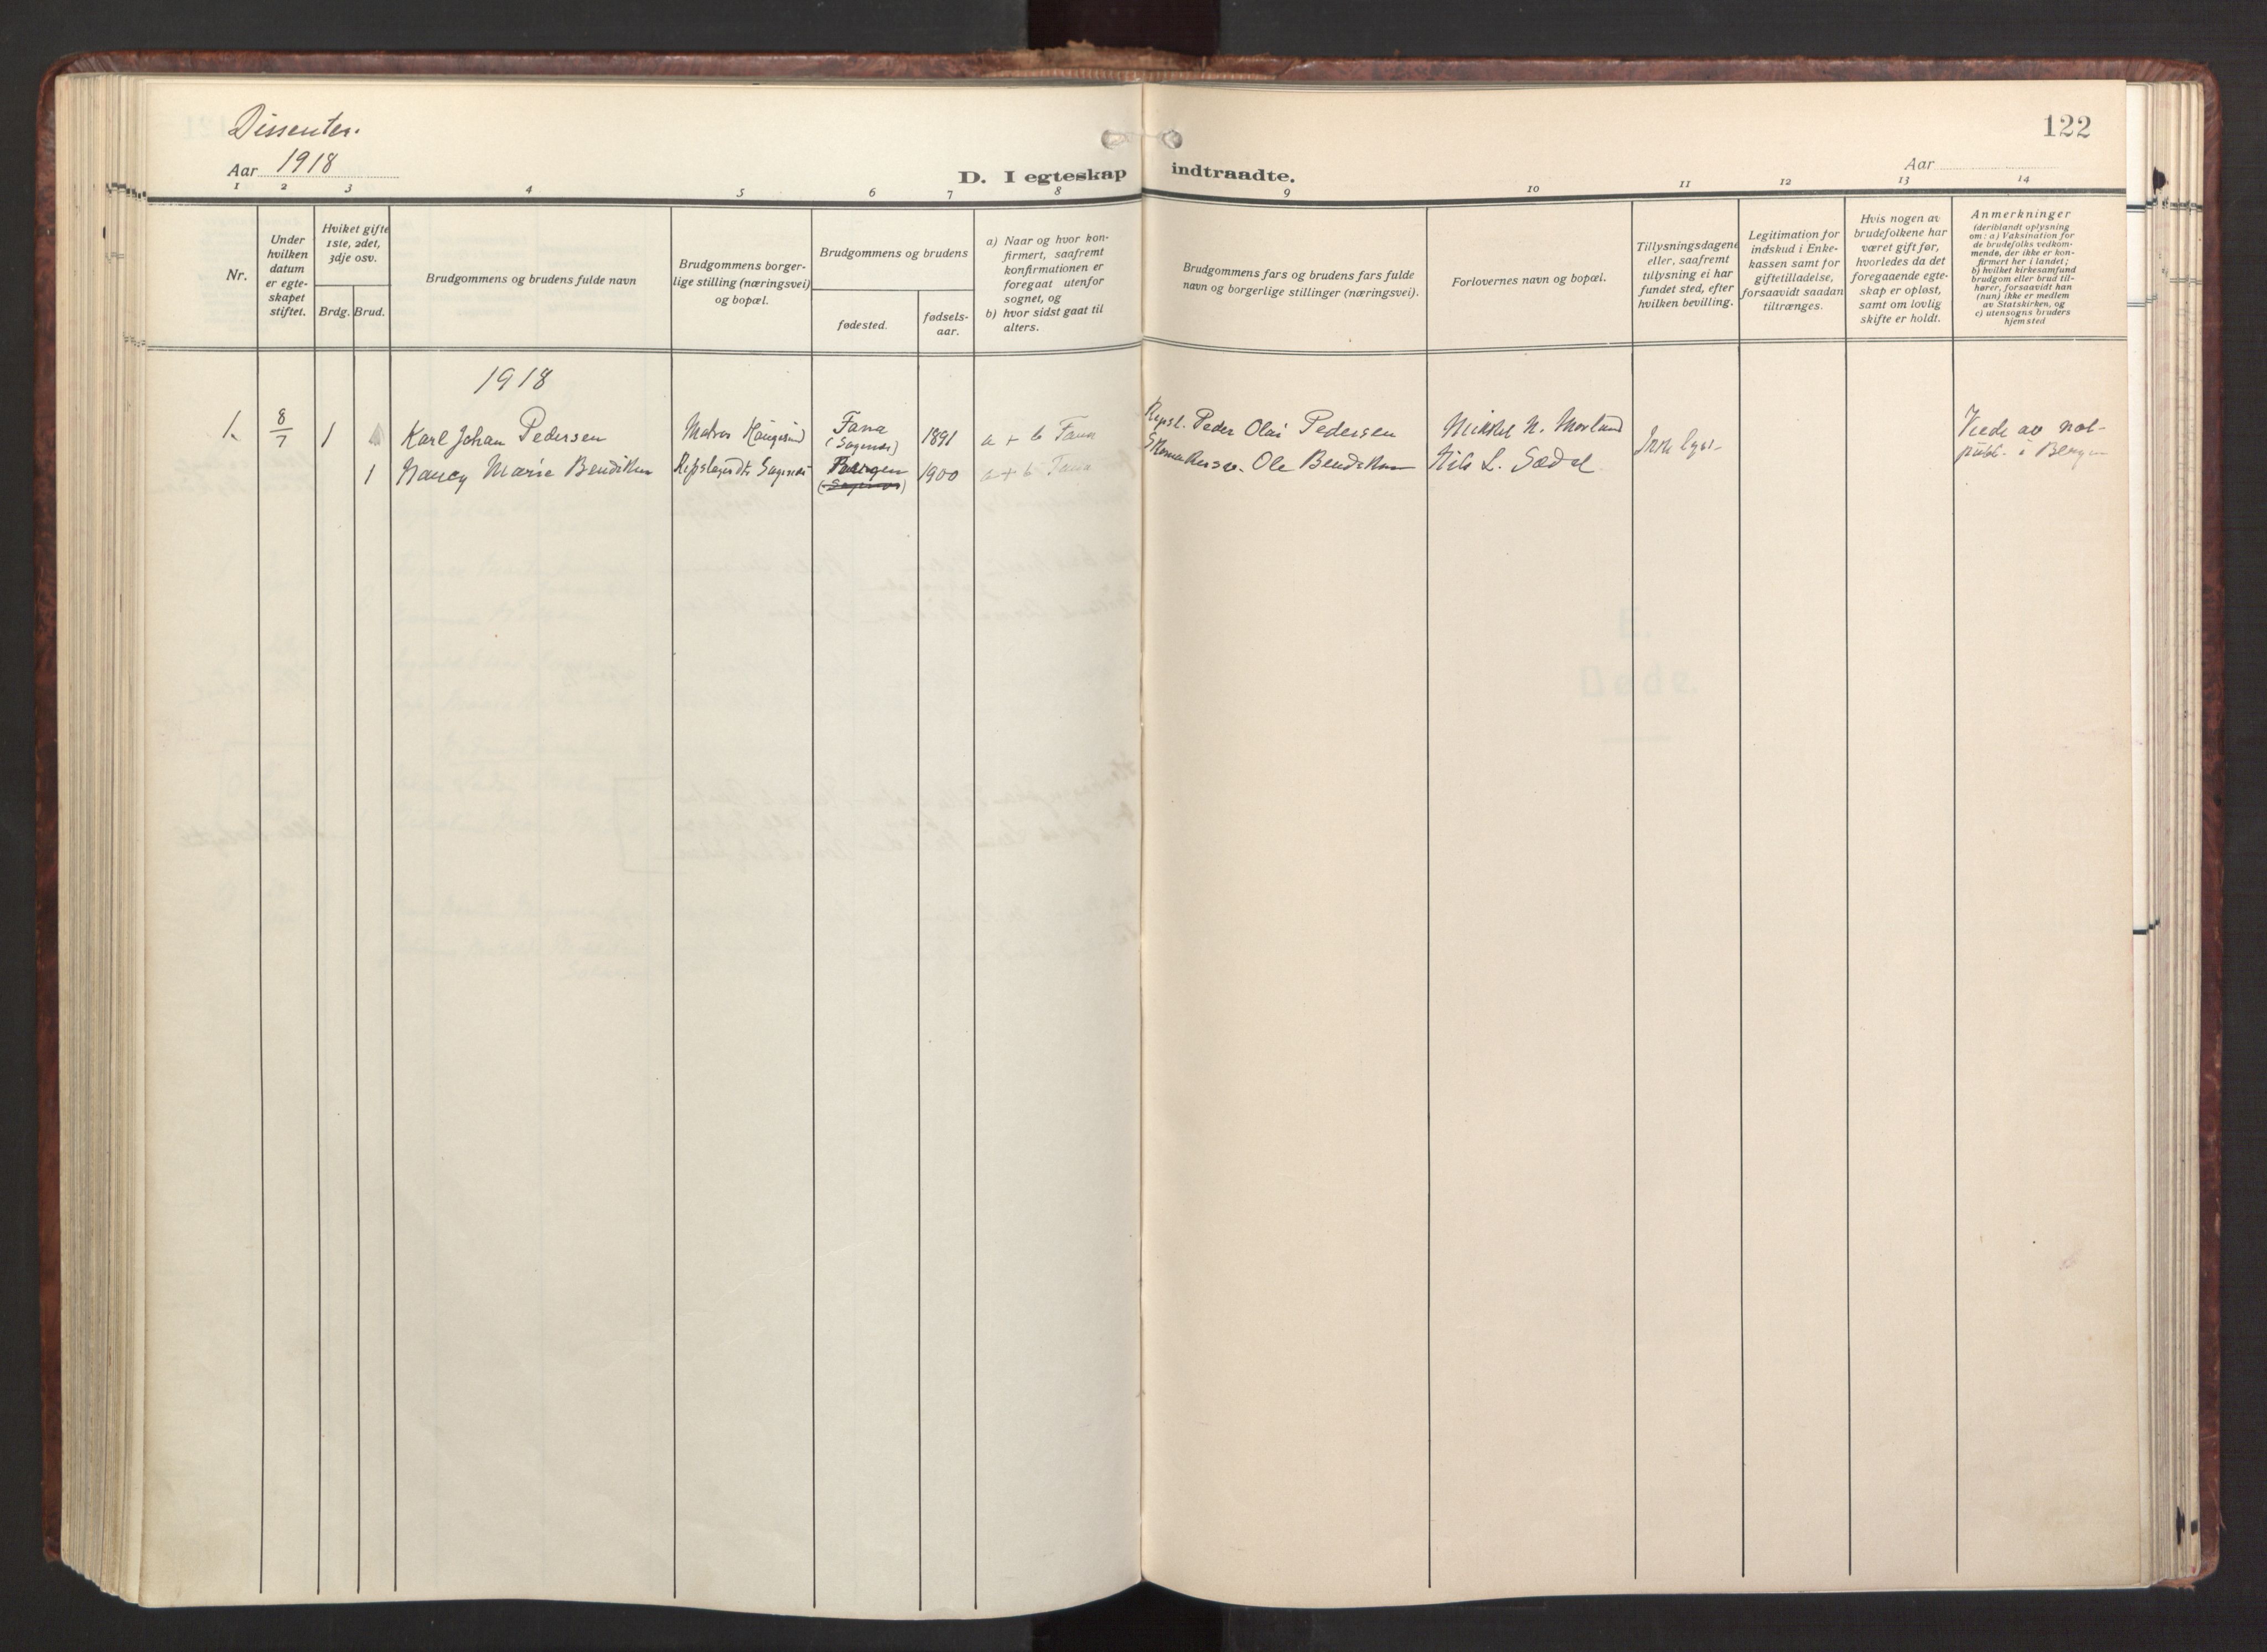 Dissenter.
122
Aar 1918
Aar
D. I egteskap indtraadte.
1 2 3 4 5 6 7 8 9 10 11 12 13 14
Nr.
Under
hvilken
datum
er egte-
skapet
stiftet.
Hvilket gifte
1ste, 2det,
3dje osv.
Brdg. Brud.
Brudgommens og brudens fulde navn
Brudgommens borger-
lige stilling (næringsvei)
og bopæl.
Brudgommens og brudens
fødested.
fødsels-
aar.
a) Naar og hvor kon-
firmert, saafremt
konfirmationen er
foregaat utenfor
sognet, og
b) hvor sidst gaat til
alters.
Brudgommens fars og brudens fars fulde
navn og borgerlige stillinger (næringsvei).
Forlovernes navn og bopæl.
Tillysningsdagene
eller, saafremt
tillysning ei har
fundet sted, efter
hvilken bevilling.
Legitimation for
indskud i Enke-
kassen samt for
giftetilladelse,
forsaavidt saadan
tiltrænges.
Hvis nogen av
brudefolkene har
været gift før,
hvorledes da det
foregaaende egte-
skap er opløst,
samt om lovlig
skifte er holdt.
Anmerkninger
(deriblandt oplysning
om: a) Vaksination for
de brudefolks vedkom-
mende, der ikke er kon-
firmert her i landet;
b) hvilket kirkesamfund
brudgom eller brud til-
hører, forsaavidt han
(hun) ikke er medlem
av Statskirken, og
c) utensogns bruders
hjemsted
1918
1. 8/7 1 Karl Johan Pedersen Matros Haugesund Fana (Sagenes) 1891 a + b Fana Repsl. Peder Olai Pedersen Mikkel N. Morland
1 Nancy Marie Bendiksen Bergen 1900 a + b Fana Ole Bendiksen Nils L. Sædal
Viede av not-
publ. i Bergen